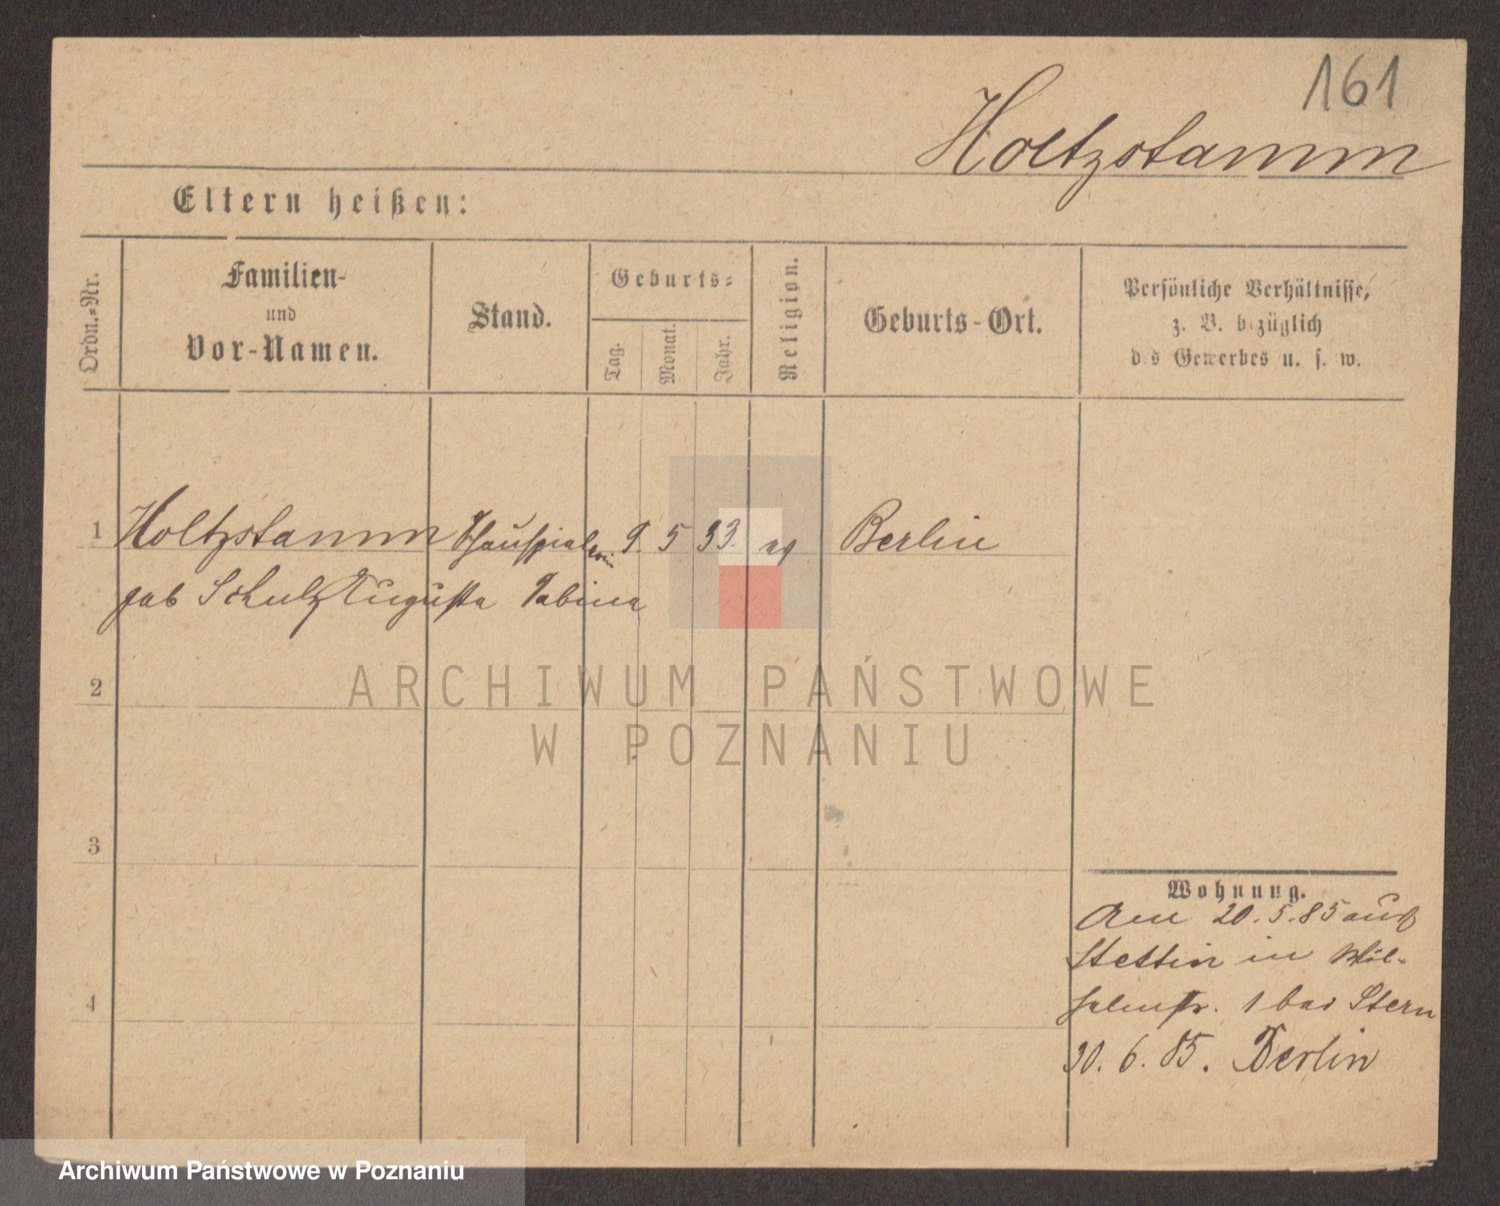 161
Holtzstamm
Eltern heißen:
Ordn.-Nr.
Familien-
und
Vor-Namen.
Stand.
Geburts-
Tag.
Monat.
Jahr.
Religion.
Geburts-Ort.
Persönliche Verhältnisse,
z. B. bezüglich
des Gewerbes u. s. w.
1 Holtzstamm Schauspielerin 9. 5 33. Berlin
geb Schulz Augusta Sabina
2
ARCHIWUM PAŃSTWOWE
W POZNANIU
3
Wohnung.
Am 20.5.85 aus
Stettin in
1 bei Stern
4
30. 6. 85. Berlin
Archiwum Państwowe w Poznaniu